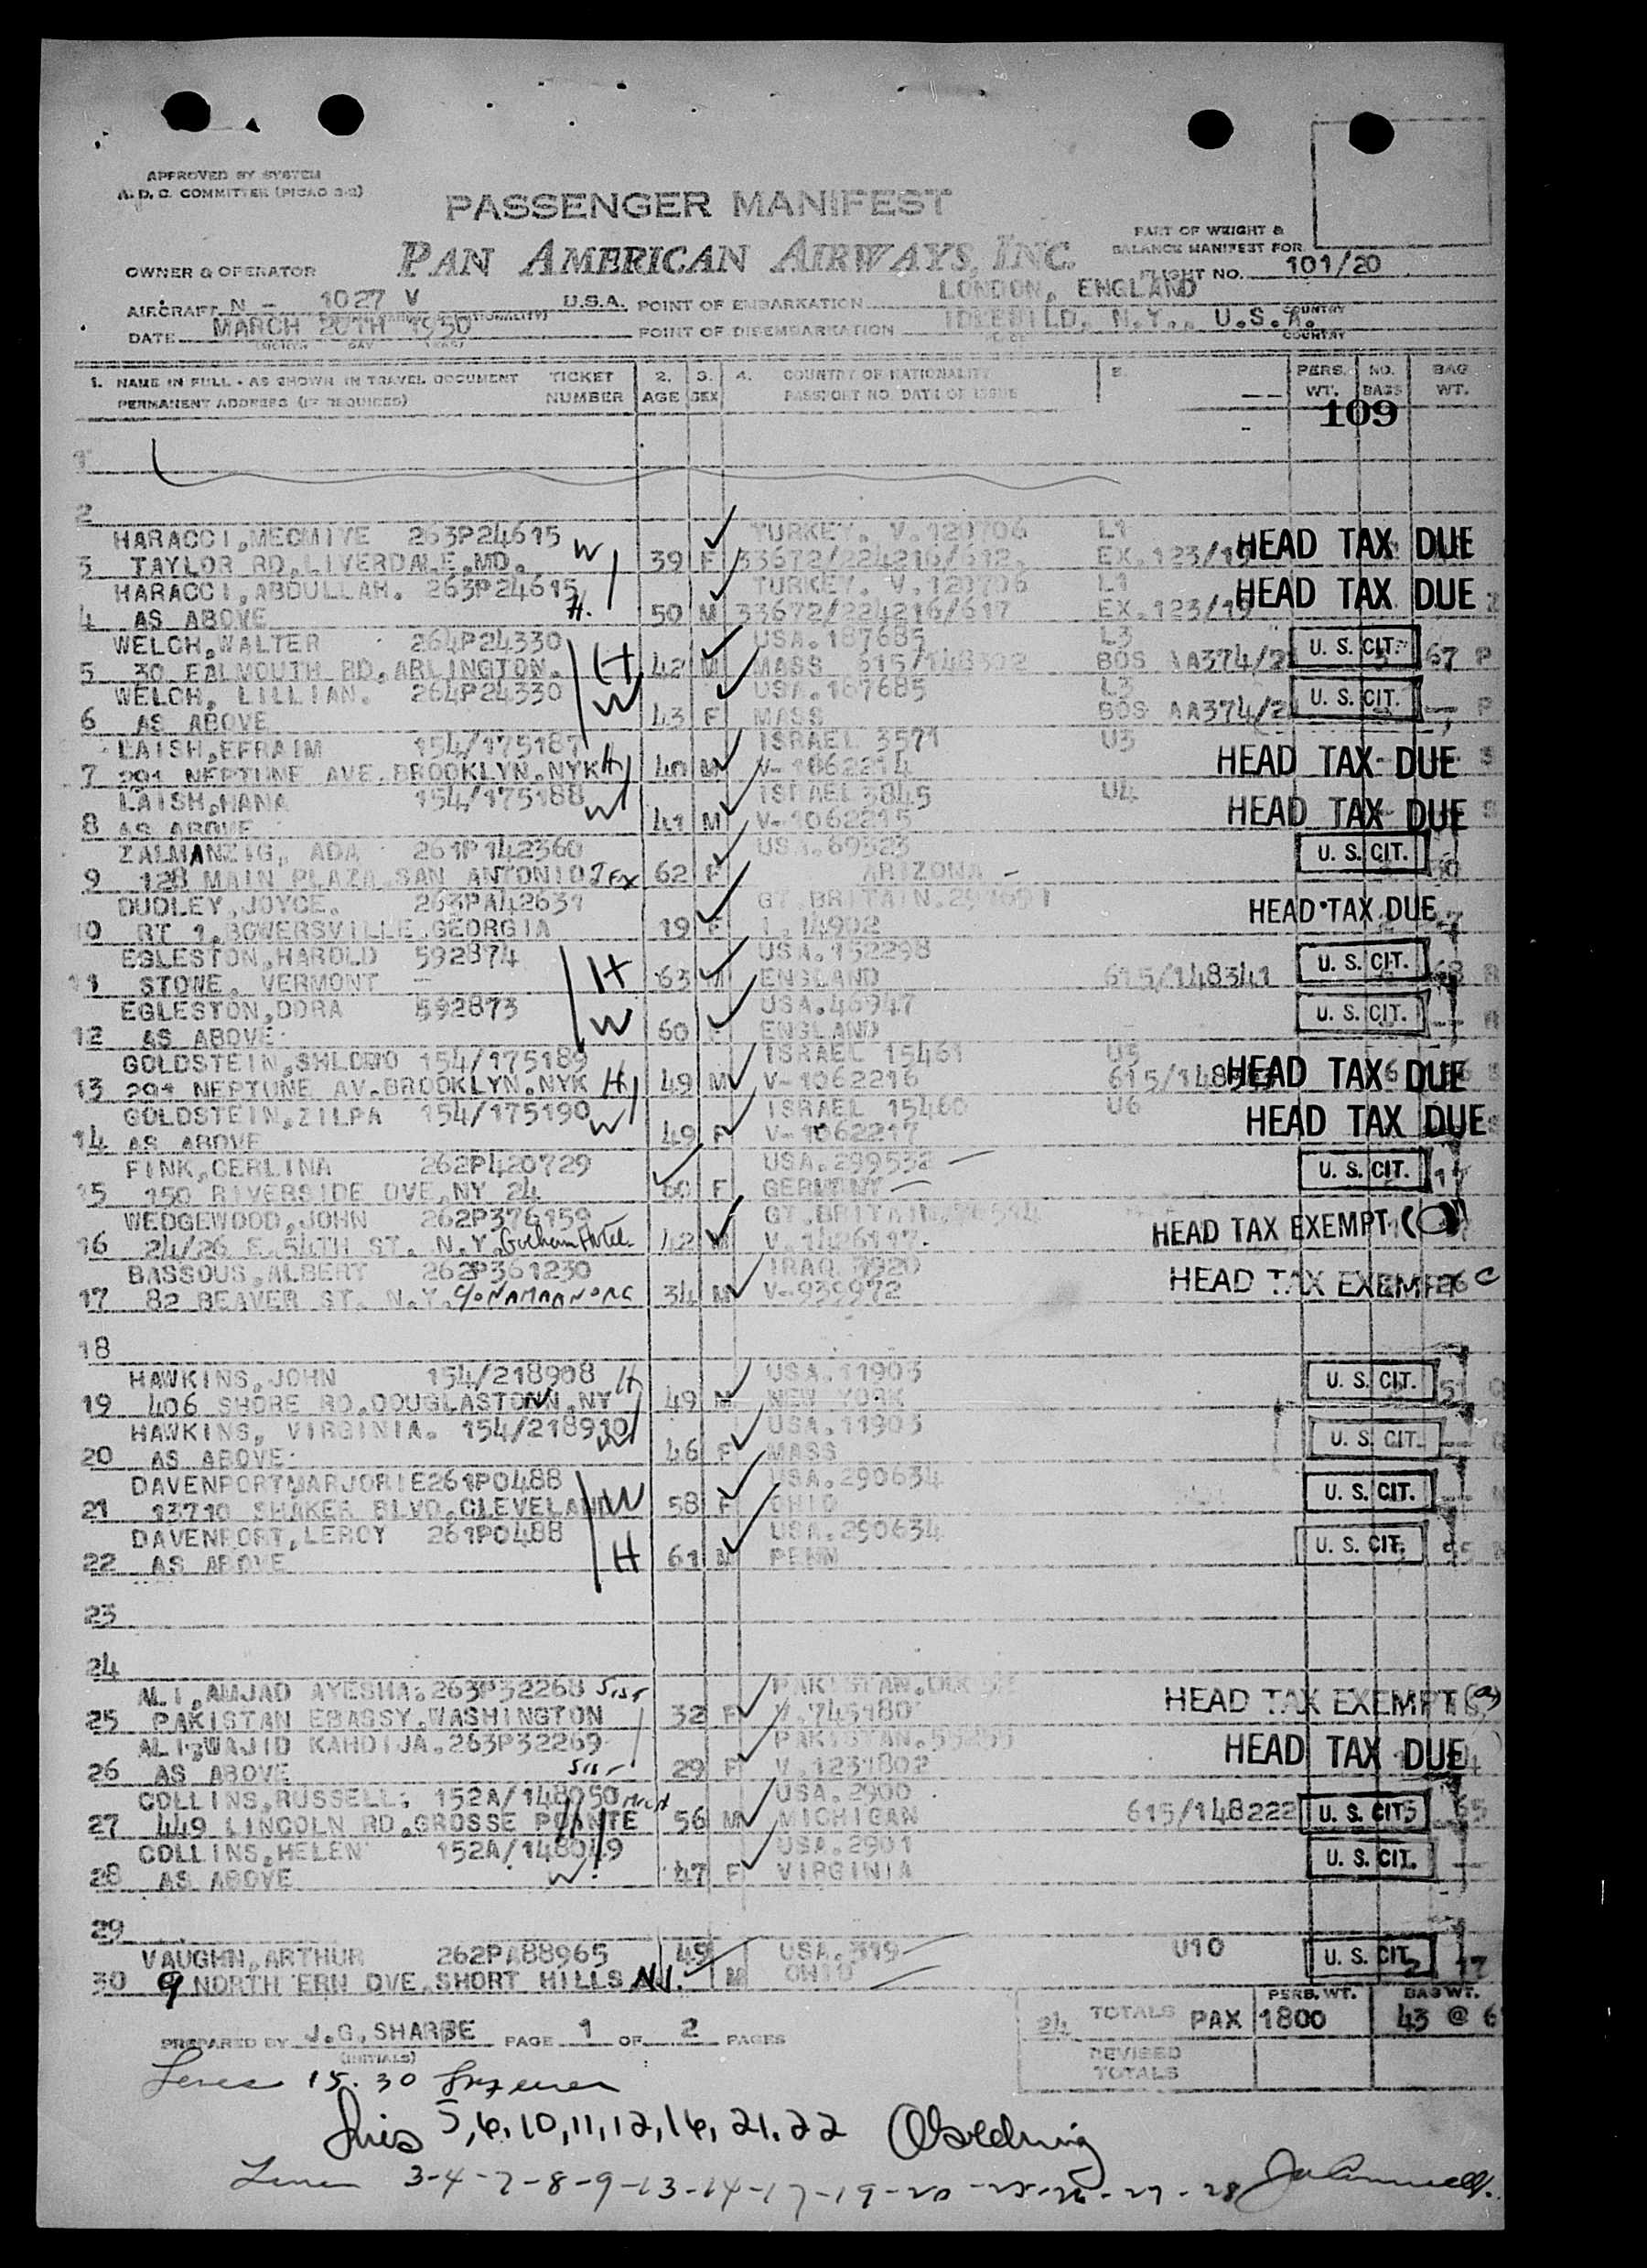 APPROVED BY SYSTEM
A. D. C. COMMITTEE (PICAO 3-2)
PASSENGER MANIFEST
PAN AMERICAN AIRWAYS, INC.
PART OF WEIGHT &
BALANCE MANIFEST FOR
OWNER & OPERATOR
FLIGHT NO. 101/20
AIRCRAFT N - 1027 V U.S.A. POINT OF EMBARKATION LONDON, ENGLAND COUNTRY
DATE MARCH 20TH 1950 POINT OF DISEMBARKATION IDLEWILD, N.Y., U.S.A. COUNTRY
1. NAME IN FULL - AS SHOWN IN TRAVEL DOCUMENT TICKET 2. 3. 4. COUNTRY OF NATIONALITY 5. PERS. NO. BAG
PERMANENT ADDRESS (IF REQUIRED) NUMBER AGE SEX PASSPORT NO. DATE OF ISSUE WT. BAGS WT.
109
1
2
HARACCI,MECMIYE 263P24615 W TURKEY. V.120706 L1 HEAD TAX DUE
3 TAYLOR RD,LIVERDALE,MD. 39 F 33672/224216/612. EX.123/19
HARACCI,ABDULLAH. 263P24615 H. TURKEY. V.120706 L1 HEAD TAX DUE
4 AS ABOVE 50 M 33672/224216/617 EX.123/19
WELCH,WALTER 264P24330 H USA.187685 L3 U. S. CIT.
5 30 FALMOUTH RD,ARLINGTON. 42 M MASS 615/148302 BOS AA374/2 67 P
WELCH, LILLIAN. 264P24330 W USA.187685 L3 U. S. CIT.
6 AS ABOVE 43 F MASS BOS AA374/2 P
LAISH,EFRAIM 154/175187 ISRAEL 3571 U3 HEAD TAX DUE
7 291 NEPTUNE AVE.BROOKLYN.NYK H 40 M V-1062214
LAISH,HANA 154/175188 W ISRAEL 3845 U4 HEAD TAX DUE
8 AS ABOVE 41 M V-1062215
ZALMANZIG, ADA 261P142360 USA.60323 U. S. CIT.
9 128 MAIN PLAZA SAN ANTONIO Tex 62 F ARIZONA
DUDLEY,JOYCE. 263PA42631 GT.BRITAIN. HEAD TAX DUE
10 RT 1,BOWERSVILLE.GEORGIA 19 F I.14902
EGLESTON,HAROLD 592874 H USA.132298 U. S. CIT.
11 STOWE, VERMONT 63 M ENGLAND 615/148341 68
EGLESTON,DORA 592873 W USA.46947 U. S. CIT.
12 AS ABOVE 60 F ENGLAND
GOLDSTEIN,SHLOMO 154/175189 ISRAEL 15461 U5 HEAD TAX DUE
13 291 NEPTUNE AV.BROOKLYN.NYK H 49 M V-1062216
GOLDSTEIN,ZILPA 154/175190 W ISRAEL 15460 U6 HEAD TAX DUE
14 AS ABOVE 49 F V-1062217
FINK,CERLINA 262P420729 USA.299532 U. S. CIT.
15 150 RIVERSIDE DVE,NY 24 60 F GERMANY
WEDGEWOOD,JOHN 262P376159 GT.BRITAIN. HEAD TAX EXEMPT
16 24/26 E.54TH ST. N.Y. Gotham Hotel 42 M
BASSOUS,ALBERT 262P361230 IRAQ 3920 HEAD TAX EXEMPT C
17 82 BEAVER ST. N.Y. 34 M V-939972
18
HAWKINS,JOHN 154/218908 H USA.11903 U. S. CIT.
19 406 SHORE RD,DOUGLASTOWN,NY 49 M NEW YORK
HAWKINS, VIRGINIA. 154/218910 W USA.11903 U. S. CIT.
20 AS ABOVE 46 F MASS
DAVENPORT,MARJORIE 261P0488 W USA.290634 U. S. CIT.
21 13710 SHAKER BLVD,CLEVELAND 58 F OHIO
DAVENPORT,LEROY 261P0488 H USA.290634 U. S. CIT.
22 AS ABOVE 61 M PENN
23
24
ALI,AMJAD AYESHA.263P32268 Sist PAKISTAN. HEAD TAX EXEMPT (a)
25 PAKISTAN EBASSY,WASHINGTON 32 F V.745980
ALI,WAJID KAHDIJA.263P32269 PAKISTAN. HEAD TAX DUE
26 AS ABOVE Sis 29 F V.1231802
COLLINS,RUSSELL. 152A/148050 Mich USA.2900 U. S. CIT.
27 449 LINCOLN RD,GROSSE POINTE H 56 M MICHIGAN 615/148222 65
COLLINS,HELEN 152A/148049 USA.2901 U. S. CIT.
28 AS ABOVE W 47 F VIRGINIA
29
VAUGHN,ARTHUR 262PA88965 45 USA.319 U10 U. S. CIT.
30 9 NORTH ERN DVE,SHORT HILLS N.J. M OHIO
PERS. WT. BAG WT.
24 TOTALS PAX 1800 43 @ 6
PREPARED BY J.G.SHARPE PAGE 1 OF 2 PAGES
(INITIALS)
REVISED
TOTALS
Lines 15. 30
Lines 5,6,10,11,12,16,21,22
Lines 3-4-7-8-9-13-14-17-19-20-25-26-27-28